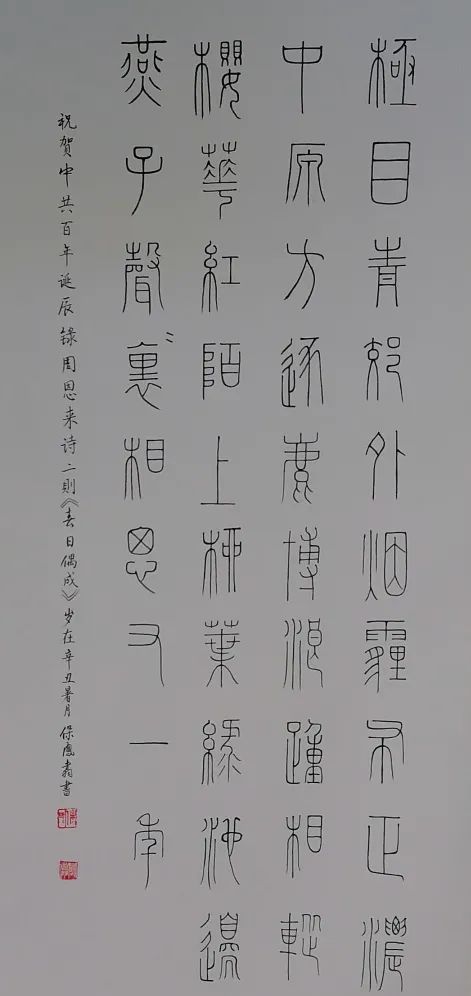 極目青郊外烟霾布正濃
中原方逐鹿博浪踵相蹤
櫻華紅陌上柳葉綠池邊
燕子聲〻裏相思又一年
祝賀中共百年诞辰錄周恩来诗二則《春日偶成》岁在辛丑暑月保鳳翥書